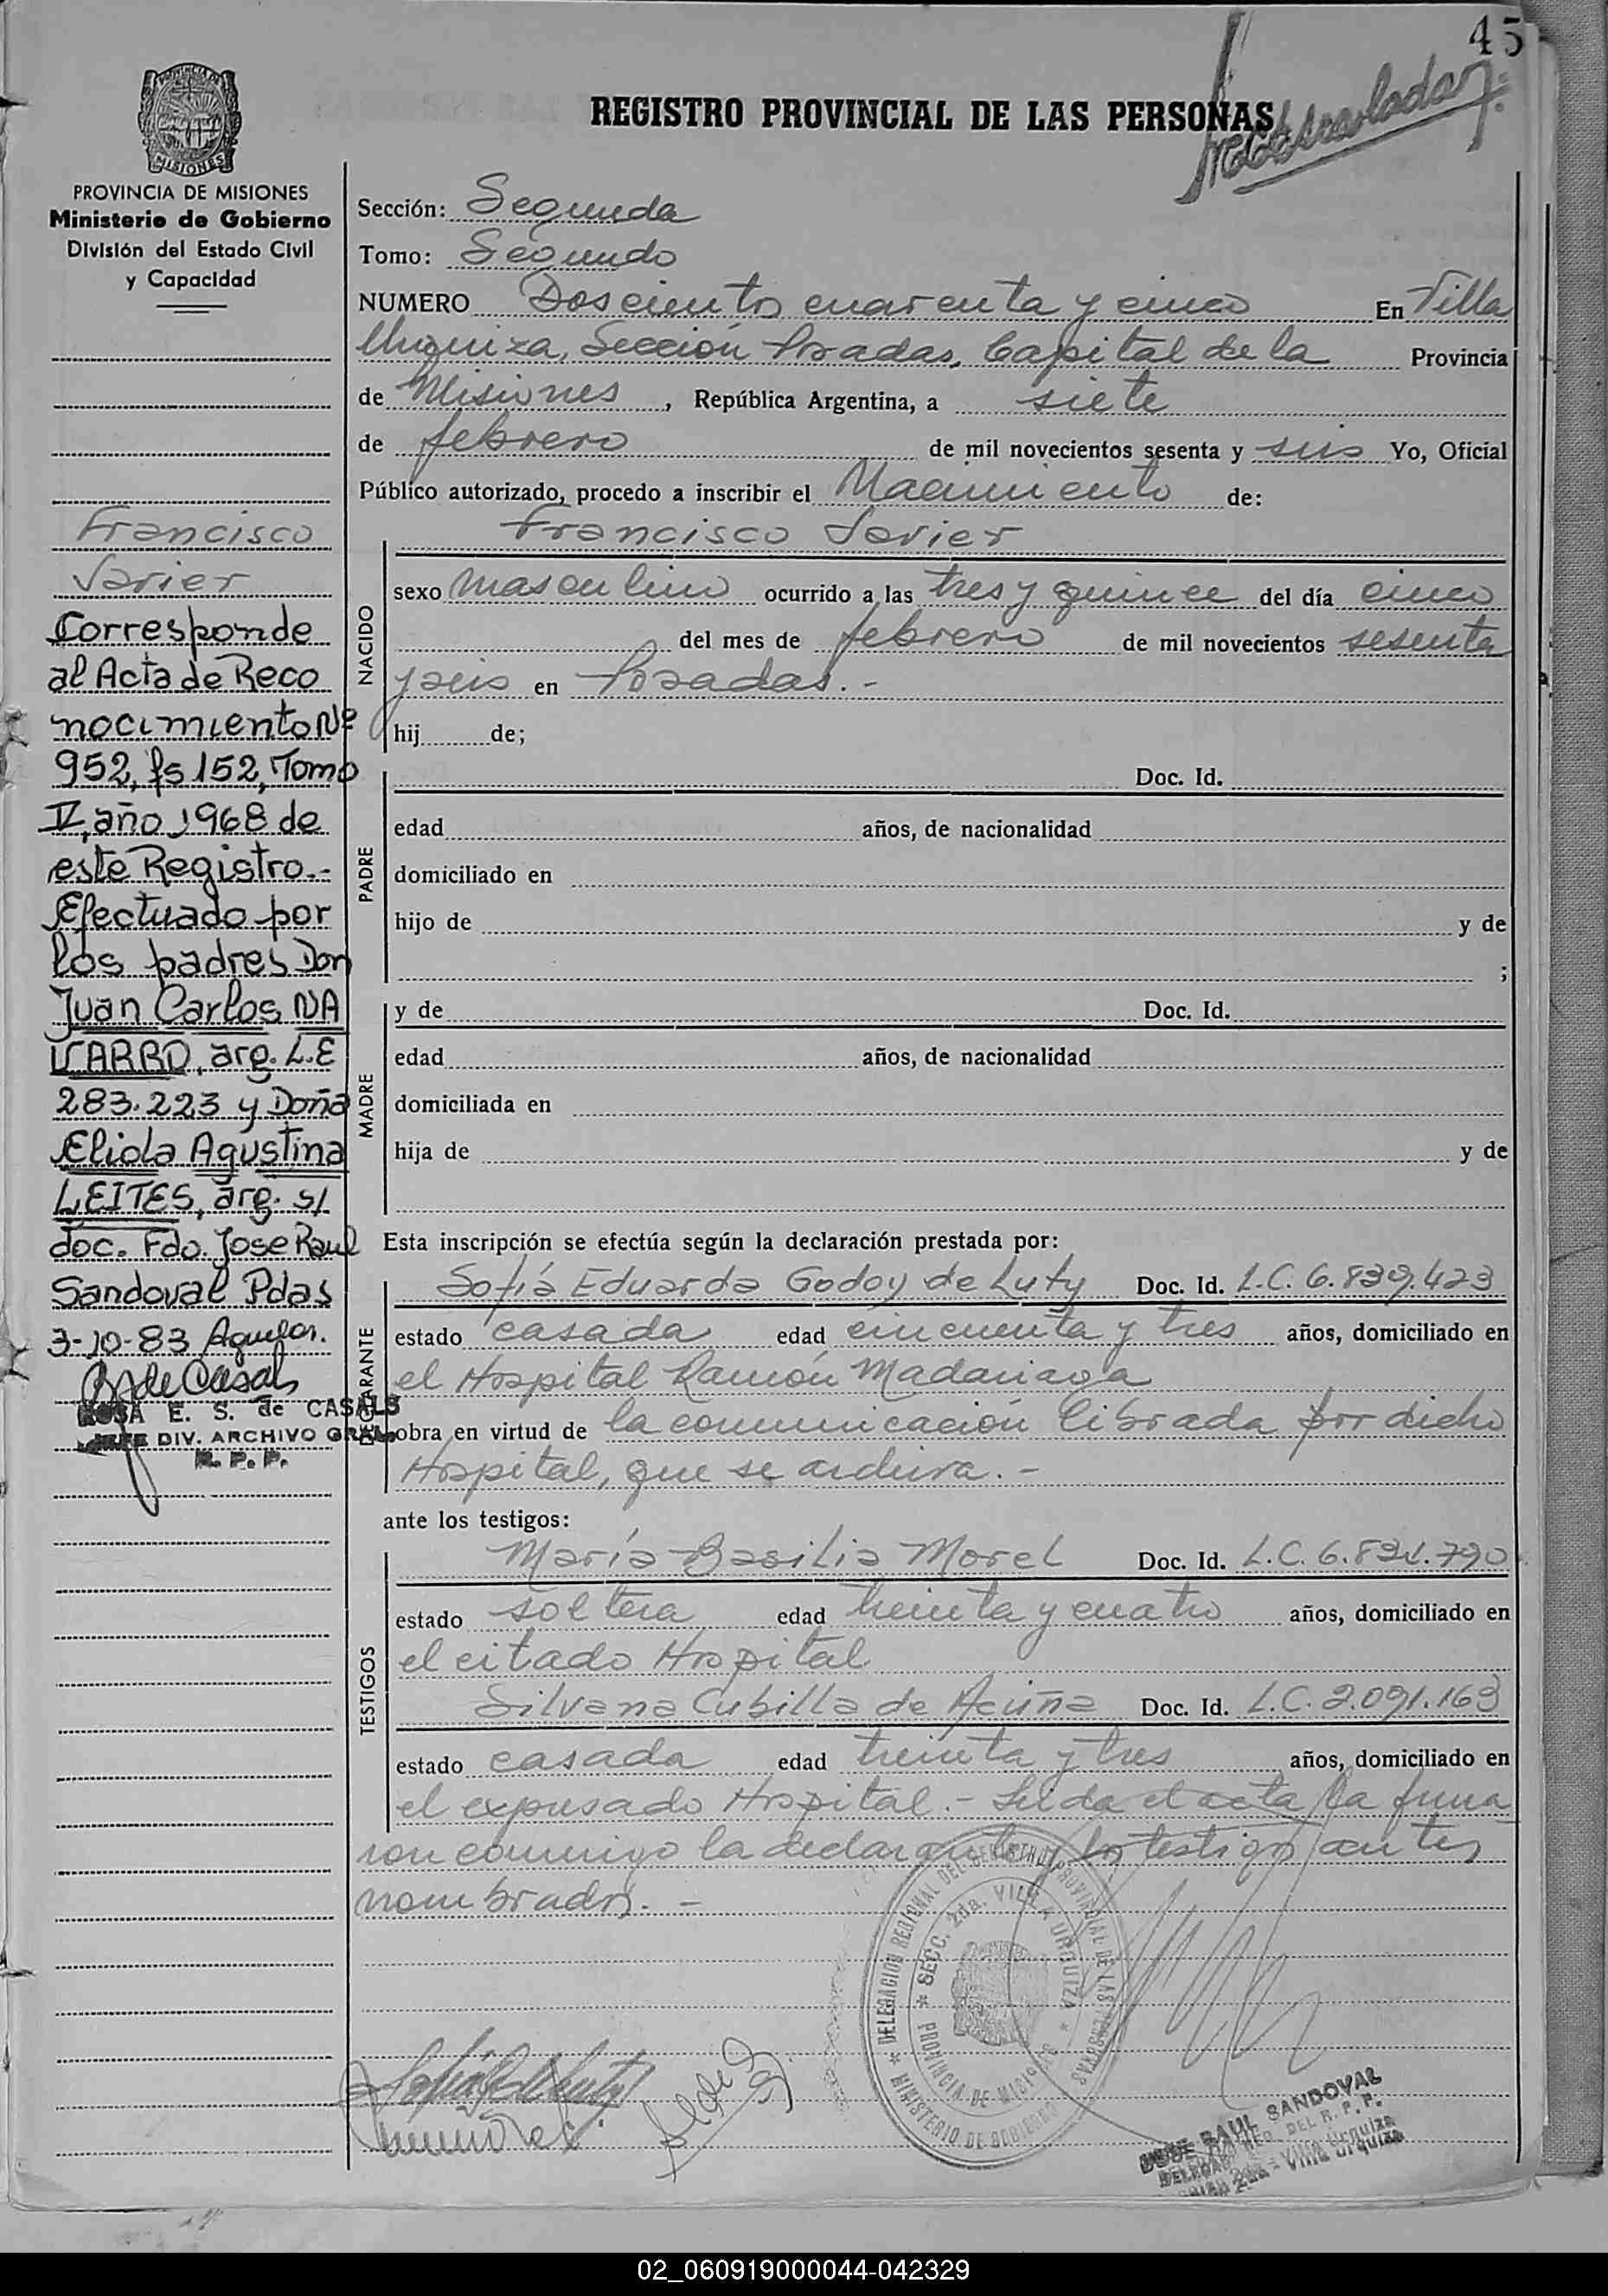 45
REGISTRO PROVINCIAL DE LAS PERSONAS
MISIONES
PROVINCIA DE MISIONES
Ministerio de Gobierno
División del Estado Civil
y Capacidad
Francisco
Javier
Corresponde
al Acta de Reco
nocimiento Nº
952, fs 152, Tomo
IV, año 1968 de
este Registro.-
Efectuado por
los padres Don
Juan Carlos NA
VARRO, arg. L.E
283.223 y Doña
Eliola Agustina
LEITES, arg. s/
doc. Fdo. Jose Raul
Sandoval Pdas
3-10-83 Aguilar.
de Casals
ROSA E. S. de CASALS
JEFE DIV. ARCHIVO GRAL.
R. P. P.
Sección: Segunda
Tomo: Segundo
NUMERO Doscientos cuarenta y cinco En Villa
Urquiza, Sección Posadas, Capital de la Provincia
de Misiones, República Argentina, a siete
de febrero de mil novecientos sesenta y seis Yo, Oficial
Público autorizado, procedo a inscribir el Nacimiento de:
Francisco Javier
NACIDO
sexo masculino ocurrido a las tres y quince del día cinco
del mes de febrero de mil novecientos sesenta
y seis en Posadas.-
hij de;
PADRE
Doc. Id.
edad años, de nacionalidad
domiciliado en
hijo de y de
;
MADRE
y de Doc. Id.
edad años, de nacionalidad
domiciliada en
hija de y de
Esta inscripción se efectúa según la declaración prestada por:
DECLARANTE
Sofía Eduarda Godoy de Luty Doc. Id. L.C. 6.839.423
estado casada edad cincuenta y tres años, domiciliado en
el Hospital Ramón Madariaga
obra en virtud de la comunicación librada por dicho
Hospital, que se archiva.-
ante los testigos:
TESTIGOS
María Basilia Morel Doc. Id. L.C. 6.821.790
estado soltera edad treinta y cuatro años, domiciliado en
el citado Hospital
Silvana Cubilla de Acuña Doc. Id. L.C. 2.091.163
estado casada edad treinta y tres años, domiciliado en
el expresado Hospital.- Leída el acta la firma
ron conmigo la declarante y los testigos antes
nombrados.-
DELEGACION REGIONAL DEL REGISTRO PROVINCIAL DE LAS PERSONAS
SECC. 2da. VILLA URQUIZA
PROVINCIA DE MISIONES
MINISTERIO DE GOBIERNO
JOSE RAUL SANDOVAL
DEL R. P. P.
Villa Urquiza
02_060919000044-042329